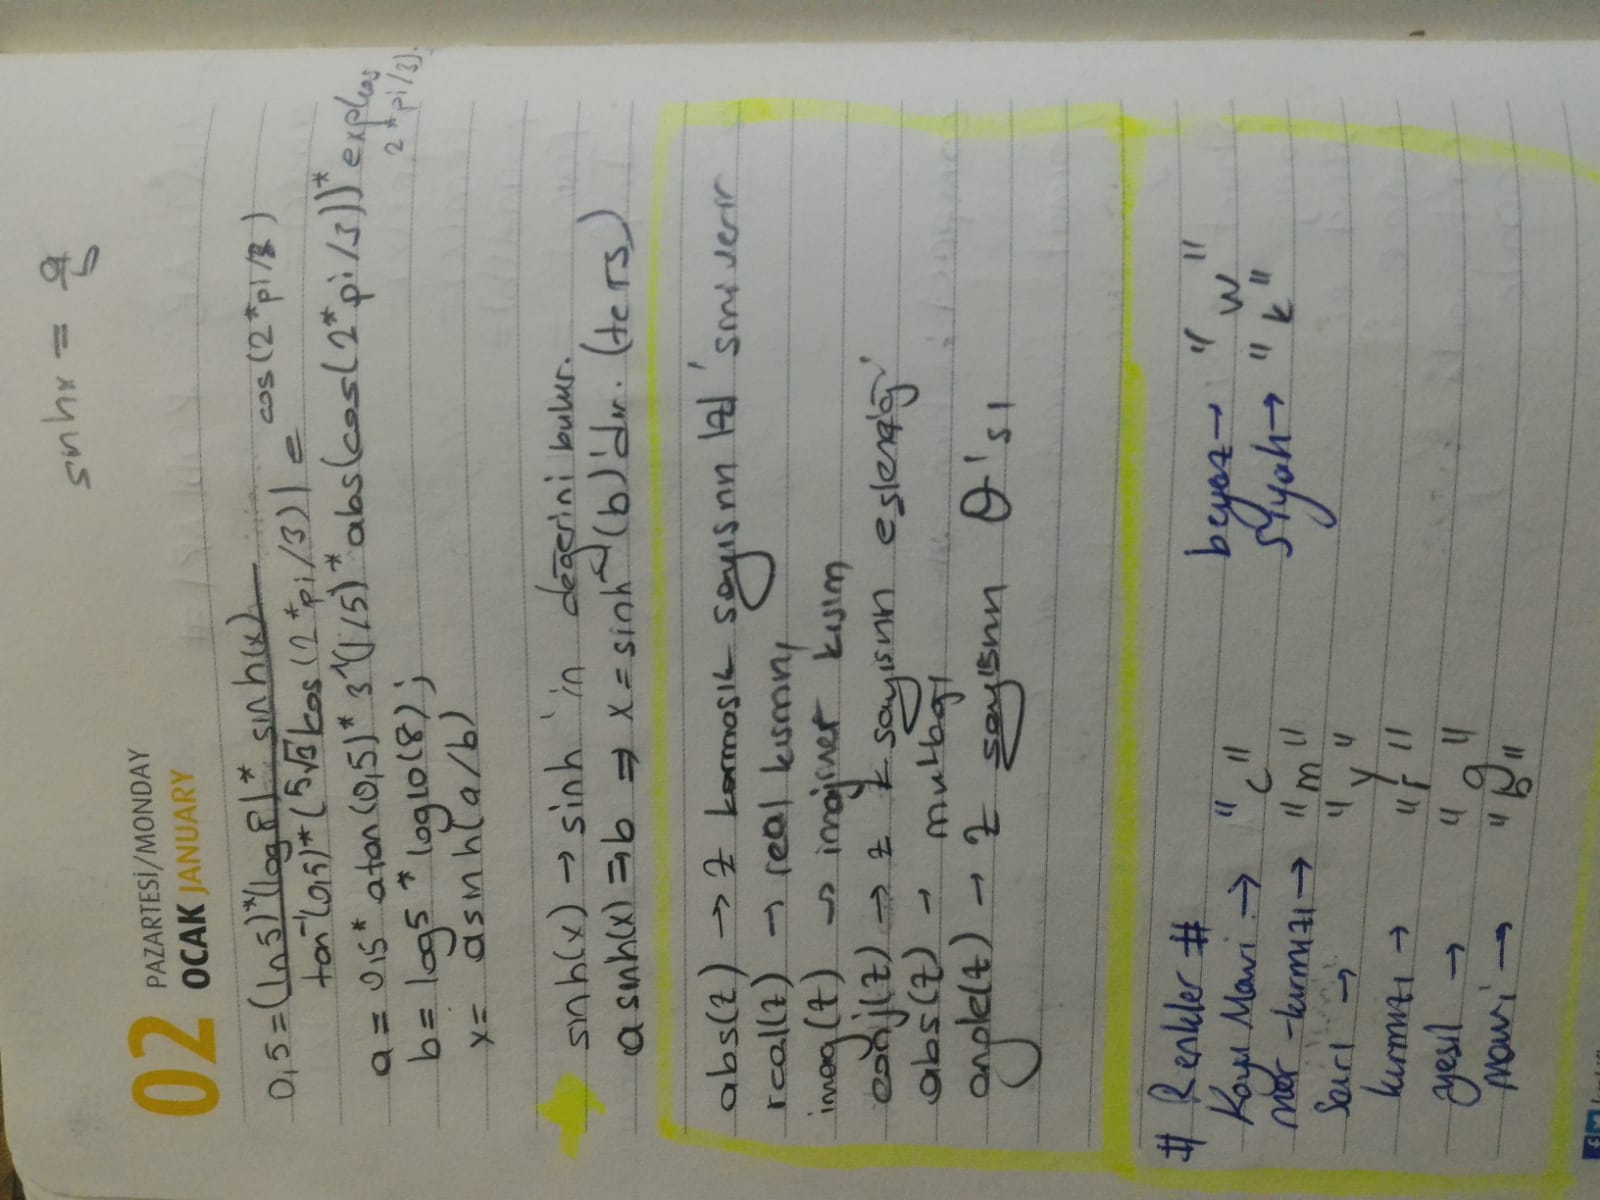 sinhx = a/b
02 PAZARTESİ/MONDAY
OCAK JANUARY
0,5 = (ln 5)*(log 8)* sinh(x)
tan⁻¹(0,5)*(5√3 |cos(2*pi/3)| e cos(2*pi/3)
a = 0,5* atan(0,5)* 3^(1/5)* abs(cos(2*pi/3))* exp(cos
2*pi/3).
b = log5 * log10(8);
x = asinh(a/b)
sinh(x) → sinh' in değerini bulur.
asinh(x) = b ⇒ x = sinh⁻¹(b)'dir. (ters)
abs(z) → z karmaşık sayısının |z|'sini verir
real(z) → real kısmını
imag(z) → imajiner kısım
conj(z) → z sayısının eşleniği
abs(z) → mutlağı
angle(z) → z sayısının θ'sı
# Renkler #
Koyu Mavi → "c" beyaz → "w"
mor-kırmızı → "m" siyah → "k"
Sarı → "y"
kırmızı → "r"
yeşil → "g"
mavi → "b"